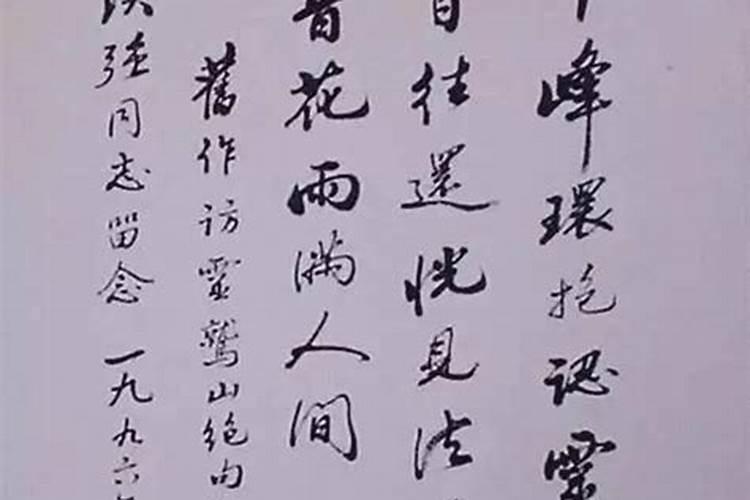 峰環抱認靈
往還恍見法
花雨滿人间
舊作访靈鷲山绝句
強同志留念一九九六年